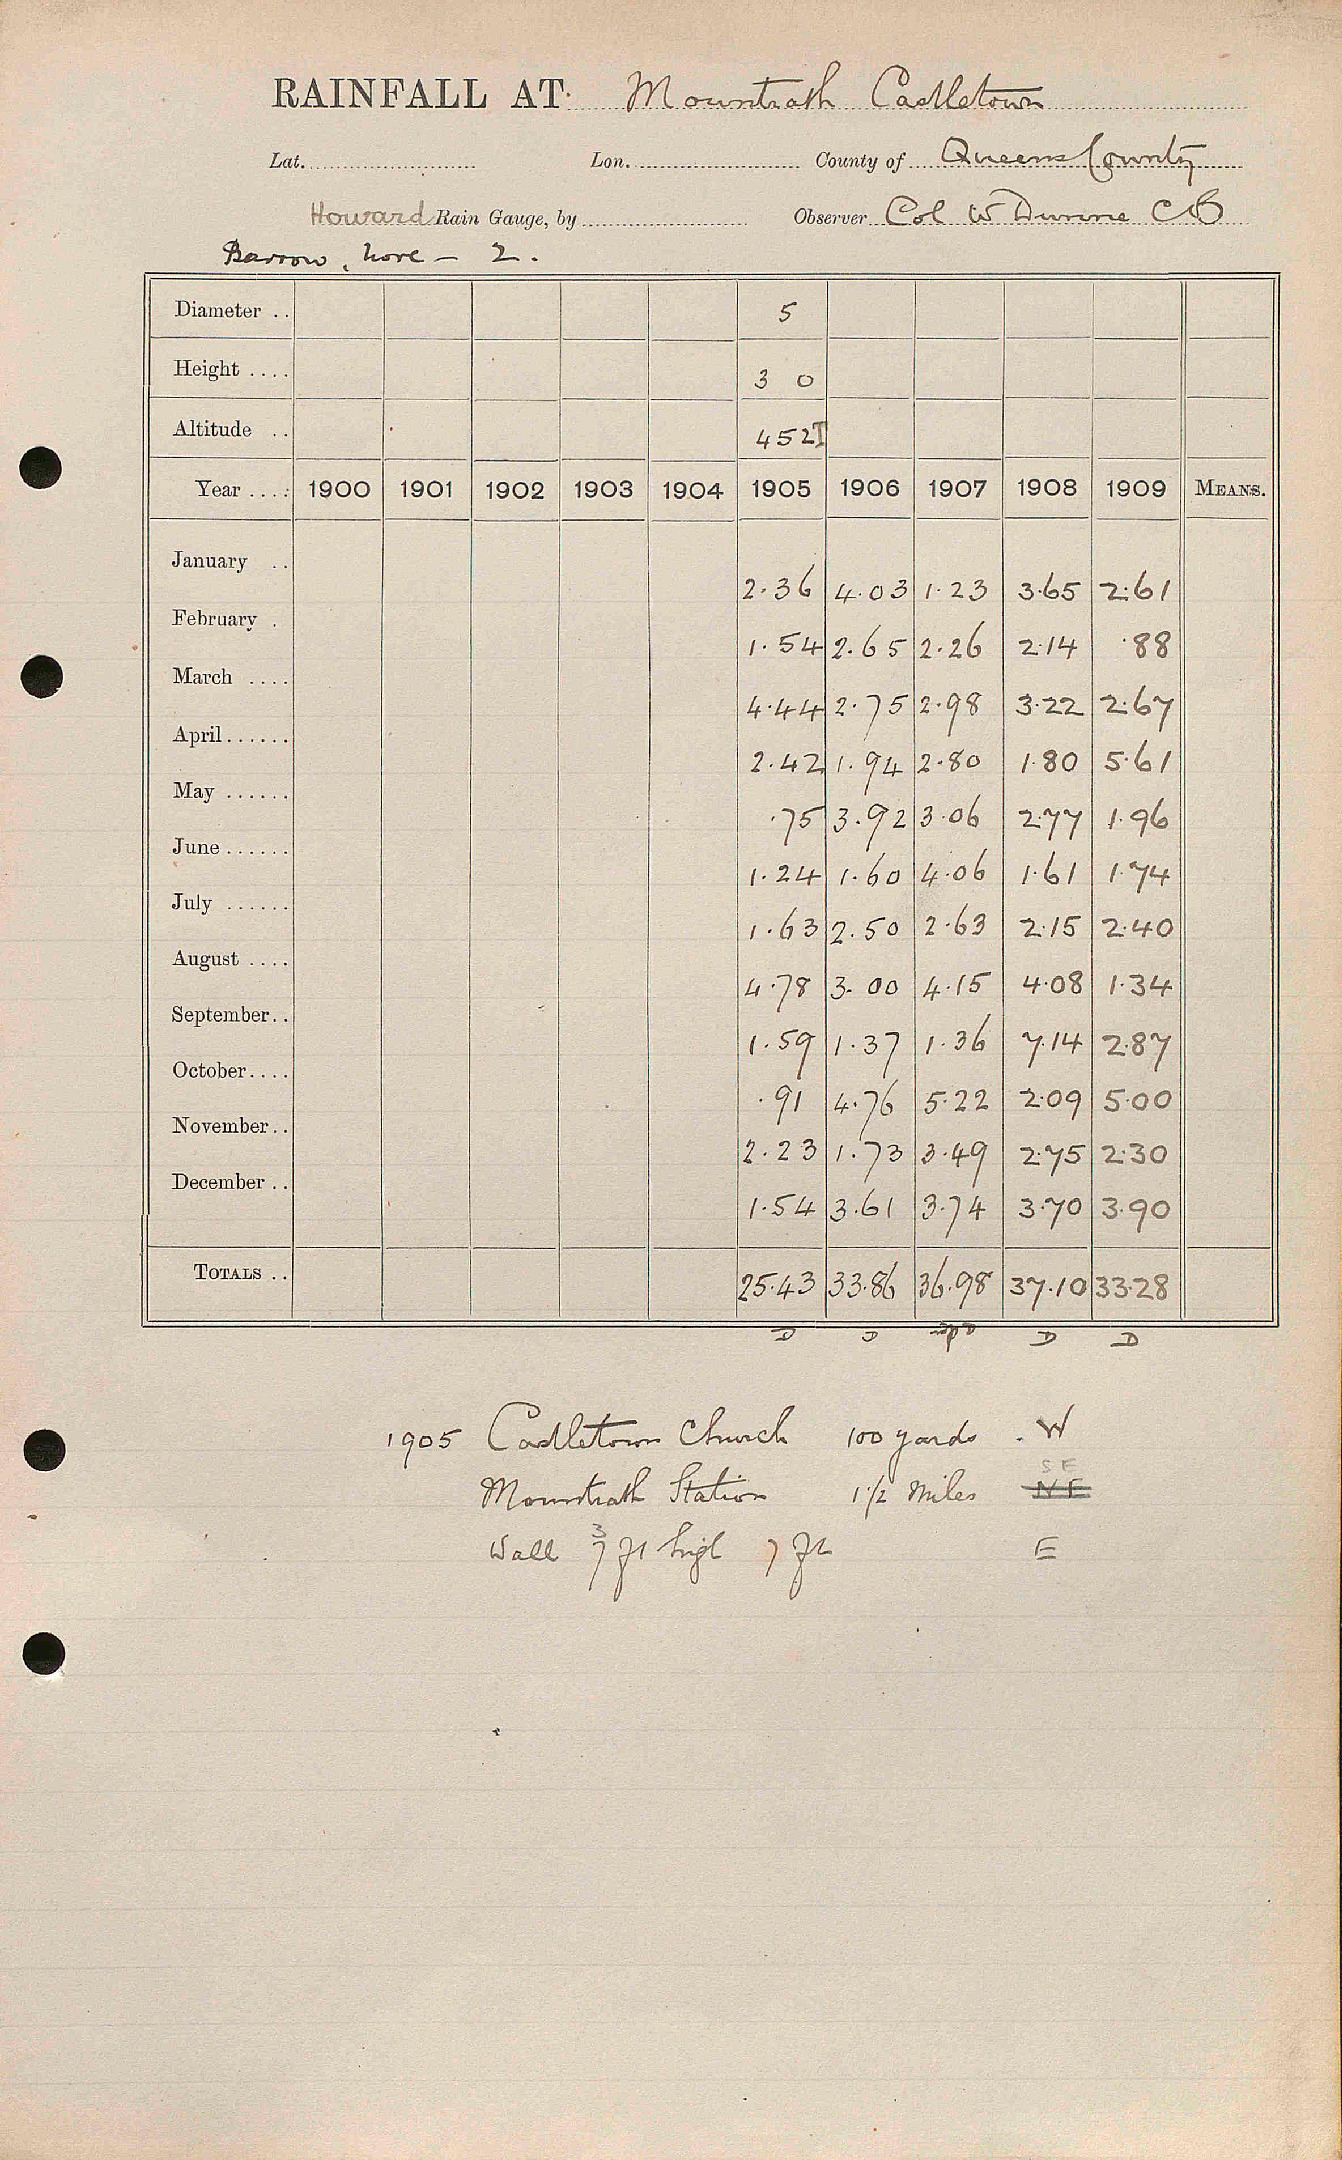 RAINFALL AT Mountrath Castletown
Lat. Lon. County of Queens County
Howard Rain Gauge, by Observer Col W Dunne CB
Barrow, Nore - 2.
Diameter .. 5
Height .... 3 0
Altitude .. 452T
Year .... 1900 1901 1902 1903 1904 1905 1906 1907 1908 1909 MEANS.
January .. 2.36 4.03 1.23 3.65 2.61
February . 1.54 2.65 2.26 2.14 .88
March .... 4.44 2.75 2.98 3.22 2.67
April...... 2.42 1.94 2.80 1.80 5.61
May ...... .75 3.92 3.06 2.77 1.96
June...... 1.24 1.60 4.06 1.61 1.74
July ...... 1.63 2.50 2.63 2.15 2.40
August .... 4.78 3.00 4.15 4.08 1.34
September.. 1.59 1.37 1.36 7.14 2.87
October.... .91 4.76 5.22 2.09 5.00
November.. 2.23 1.73 3.49 2.75 2.30
December.. 1.54 3.61 3.74 3.70 3.90
TOTALS .. 25.43 33.86 36.98 37.10 33.28
D D D D
1905 Castletown Church 100 yards . W
SE
Mountrath Station 1 1/2 miles NE
3
Wall 7 ft high 7 ft E